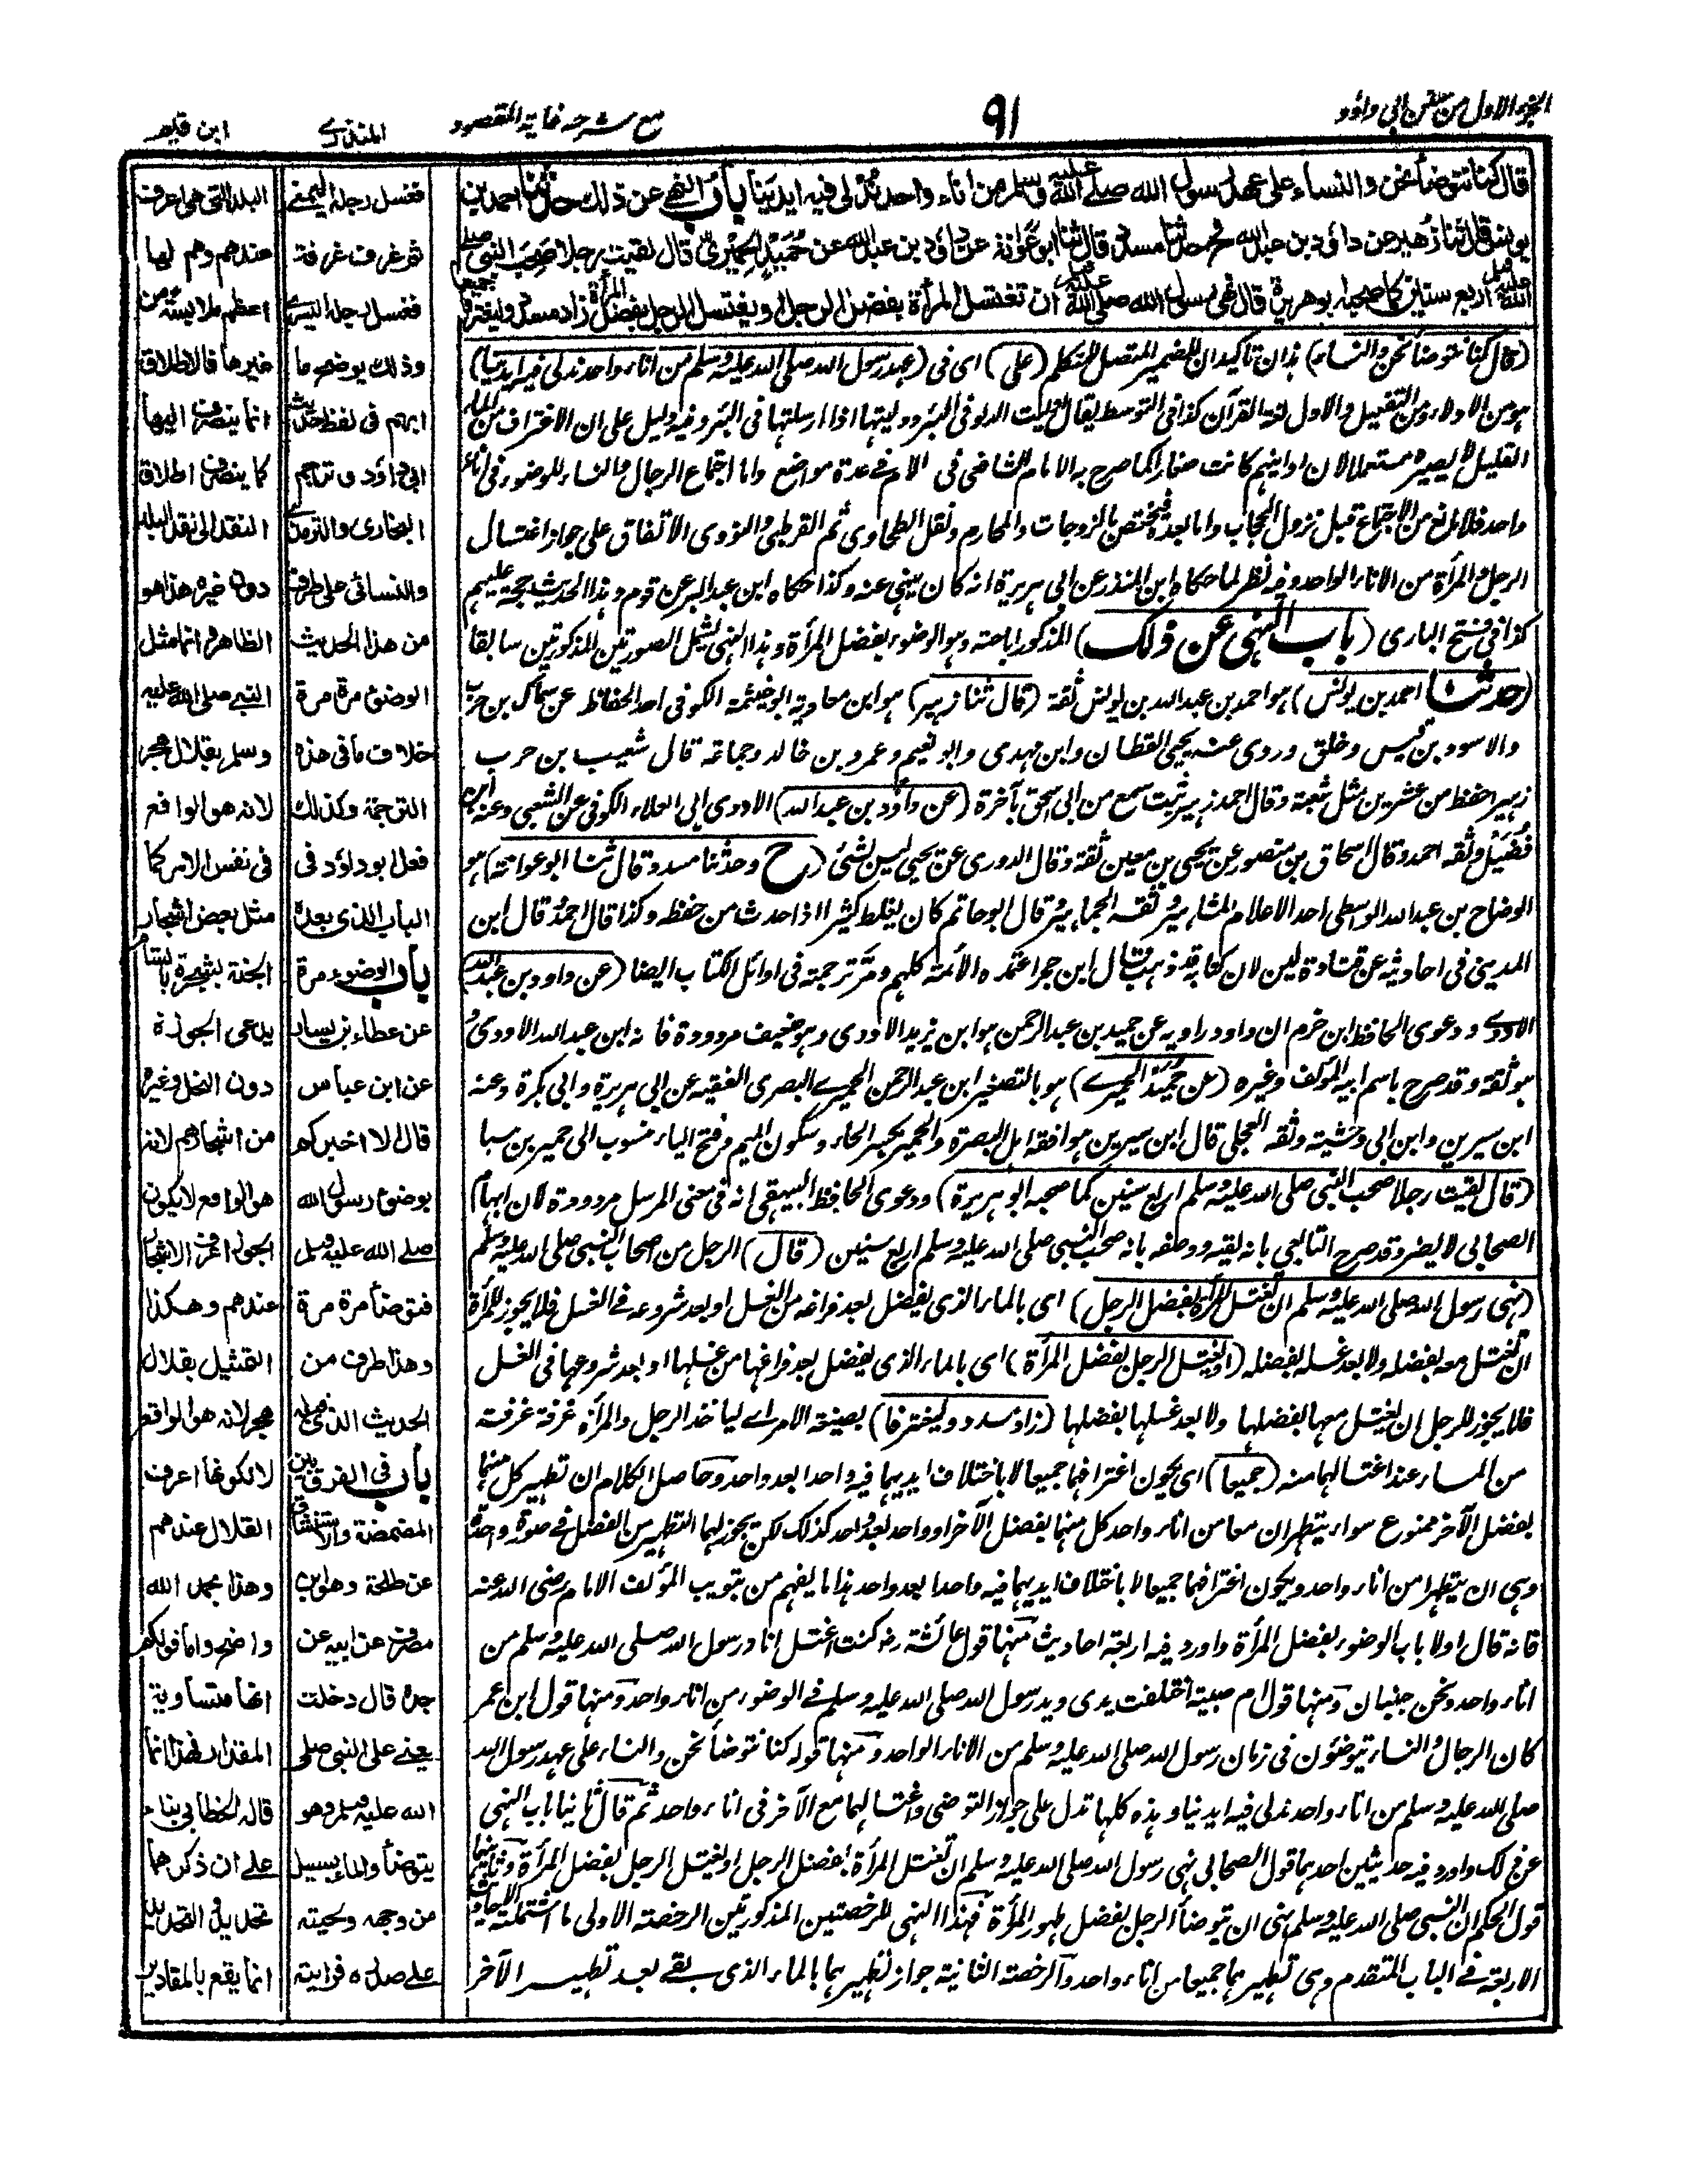 الجزء الاول من سنن ابي داؤد
٩١
مع شرحه غاية المقصود
المنذري
ابن قيم
قال كنا نتوضأ نحن والنساء على عهد رسول الله صلى الله عليه وسلم من اناء واحد ندلى فيه ايدينا باب النهي عن ذلك حدثنا احمد بن
يونس قال ثنا زهير عن داؤد بن عبد الله ح وحدثنا مسدد قال ثنا ابو عوانة عن داؤد بن عبد الله عن حميد الحميري قال لقيت رجلا صحب النبي صلى
الله عليه وسلم اربع سنين كما صحبه ابو هريرة قال نهى رسول الله صلى الله عليه وسلم ان تغتسل المرأة بفضل الرجل او يغتسل الرجل بفضل المرأة زاد مسدد وليغترفا جميعا
(قال كنا نتوضأ نحن والنساء) هذان تاكيدان للضمير المتصل للمتكلم (على) اى فى (عهد رسول الله صلى الله عليه وسلم من اناء واحد ندلى فيه ايدينا)
هو من الادلاء ومن التفعيل والاول لغة القرآن كذا فى التوسط يقال ادليت الدلو فى البئر ودليتها اذا ارسلتها فى البئر وفيه دليل على ان الاغتراف من الماء
القليل لا يصيره مستعملا لان اوانيهم كانت صغارا كما صرح به الامام الشافعى فى الام فى عدة مواضع واما اجتماع الرجال والنساء للوضوء فى اناء
واحد فلا مانع من الاجتماع قبل نزول الحجاب واما بعده فيختص بالزوجات والمحارم ونقل الطحاوى ثم القرطبى والنووى الاتفاق على جواز اغتسال
الرجل والمرأة من الاناء الواحد وفيه نظر لما حكاه ابن المنذر عن ابى هريرة انه كان ينهى عنه وكذا حكاه ابن عبد البر عن قوم وهذا الحديث حجة عليهم
كذا فى فتح البارى (باب النهى عن ذلك) المذكور اباحته وهو الوضوء بفضل المرأة وهذا النهى يشمل الصورتين المذكورتين سابقا
(حدثنا احمد بن يونس) هو احمد بن عبد الله بن يونس ثقة (قال ثنا زهير) هو ابن معاوية ابو خيثمة الكوفى احد الحفاظ عن سماك بن حرب
والاسود بن قيس وخلق وروى عنه يحيى القطان وابن مهدى وابو نعيم وعمرو بن خالد وجماعة قال شعيب بن حرب
زهير احفظ من عشرين مثل شعبة وقال احمد زهير ثبت سمع من ابى اسحق بآخرة (عن داؤد بن عبد الله) الاودى ابى العلاء الكوفى عن الشعبى وعنه ابن
فضيل وثقه احمد وقال اسحاق بن منصور عن يحيى بن معين ثقة وقال الدورى عن يحيى ليس بشئ (ح وحدثنا مسدد وقال ثنا ابو عوانة) هو
الوضاح بن عبد الله الواسطى احد الاعلام المشاهير وثقه الجماهير وقال ابو حاتم كان يغلط كثيرا اذا حدث من حفظه وكذا قال احمد وقال ابن
المدينى فى احاديثه عن قتادة لين لان كتابه قد ذهب قال ابن حجر اعتمده الأئمة كلهم ومر ترجمة فى اوائل الكتاب ايضا (عن داود بن عبد الله)
الاودى ودعوى الحافظ ابن حزم ان داود راويه عن حميد بن عبد الرحمن هو ابن يزيد الاودى وهو ضعيف مردودة فانه ابن عبد الله الاودى و
هو ثقة وقد صرح باسم ابيه المؤلف وغيره (عن حميد الحميري) هو بالتصغير ابن عبد الرحمن الحميرى البصرى الفقيه عن ابى هريرة وابى بكرة وعنه
ابن سيرين وابن ابى وحشية وثقه العجلى قال ابن سيرين هو افقه اهل البصرة والحميرى بكسر الحاء وسكون الميم وفتح الياء منسوب الى حمير بن سبا
(قال لقيت رجلا صحب النبى صلى الله عليه وسلم اربع سنين كما صحبه ابو هريرة) ودعوى الحافظ البيهقى انه فى معنى المرسل مردودة لان ابهام
الصحابى لا يضر وقد صرح التابعى بانه لقيه ووصفه بانه صحب النبى صلى الله عليه وسلم اربع سنين (قال) الرجل من صحاب النبى صلى الله عليه وسلم
(نهى رسول الله صلى الله عليه وسلم ان تغتسل المرأة بفضل الرجل) اى بالماء الذى يفضل بعد فراغه من الغسل او بعد شروعه فى الغسل فلا يجوز للمرأة
ان تغتسل معه بفضله ولا بعد غسله بفضله (او يغتسل الرجل بفضل المرأة) اى بالماء الذى يفضل بعد فراغها من غسلها او بعد شروعها فى الغسل
فلا يجوز للرجل ان يغتسل معها بفضلها ولا بعد غسلها بفضلها (زاد مسدد وليغترفا) بصيغة الامر اى لياخذ الرجل والمرأة غرفة غرفة
من الماء عند اغتسالهما منه (جميعا) اى يكون اغترافهما جميعا لا باختلاف ايديهما فيه واحدا بعد واحد وحاصل الكلام ان تطهير كل منهما
بفضل الآخر ممنوع سواء يتطهران معا من اناء واحد كل منهما بفضل الآخر او واحد بعد واحد كذلك لكن يجوز لهما التطهير من الفضل فى صورة واحدة
وهى ان يتطهرا من اناء واحد ويكون اغترافهما جميعا لا باختلاف ايديهما فيه واحدا بعد واحد هذا ما يفهم من تبويب المؤلف الامام رضى الله عنه
فانه قال اولا باب الوضوء بفضل المرأة واورد فيه اربعة احاديث منها قول عائشة رضـ كنت اغتسل انا ورسول الله صلى الله عليه وسلم من
اناء واحد ونحن جنبان ومنها قول ام صبية اختلفت يدى ويد رسول الله صلى الله عليه وسلم فى الوضوء من اناء واحد ومنها قول ابن عمر
كان الرجال والنساء يتوضئون فى زمان رسول الله صلى الله عليه وسلم من الاناء الواحد ومنها قوله كنا نتوضأ نحن والنساء على عهد رسول الله
صلى الله عليه وسلم من اناء واحد ندلى فيه ايدينا وهذه كلها تدل على جواز التوضى واغتسالهما مع الآخر فى اناء واحد ثم قال ثانيا باب النهى
عن ذلك واورد فيه حديثين احدهما قول الصحابى نهى رسول الله صلى الله عليه وسلم ان تغتسل المرأة بفضل الرجل او يغتسل الرجل بفضل المرأة وثانيهما
قول الحكم ان النبى صلى الله عليه وسلم نهى ان يتوضأ الرجل بفضل طهور المرأة فهذا النهى للرخصتين المذكورتين الرخصة الاولى ما اشتملته الاحاديث
الاربعة فى الباب المتقدم وهى تطهيرهما جميعا من اناء واحد والرخصة الثانية جواز تطهيرهما بالماء الذى بقى بعد تطهير الآخر
فغسل رجله اليمنى
ثم غرف غرفة
فغسل رجله اليسرى
وذلك يوضح ما
ابهم فى لفظ حديث
ابى داؤد وتراجم
البخارى والترمذى
والنسائى على طرف
من هذا الحديث
الوضوء مرة مرة
خلاف ما فى هذه
الترجمة وكذلك
فعل ابو داؤد فى
الباب الذى بعده
باب الوضوء مرة
عن عطاء بن يسار
عن ابن عباس
قال الا اخبركم
بوضوء رسول الله
صلى الله عليه وسلم
فتوضأ مرة مرة
وهذا طرف من
الحديث الذى قبله
باب فى الفرق بين
المضمضة والاستنشاق
عن طلحة وهو ابن
مصرف عن ابيه عن
جده قال دخلت
يعنى على النبى صلى
الله عليه وسلم وهو
يتوضأ والماء يسيل
من وجهه ولحيته
على صدره فرايته
البلد التى هى اعرف
عندهم وهم لها
اعظم ملابسة من
غيرها فالاطلاق
انما ينصرف اليها
كما ينصرف اطلاق
النقد الى نقد البلد
دون غيره هذا هو
الظاهر وانما مثل
النبى صلى الله عليه
وسلم بقلال هجر
لانه هو الواقع
فى نفس الامر كما
مثل بعض اشجار
الجنة بشجرة بالشام
يدعى الجوزة
دون النخل وغيره
من اشجارهم لانه
هو الواقع لا لكون
الجوز اعرف الاشجار
عندهم وهكذا
التمثيل بقلال
هجر لانه هو الواقع
لا لكونها اعرف
القلال عندهم
وهذا بحمد الله
واضح واما قولكم
انها متساوية
المقدار فهذا انما
قاله الخطابى بناء
على ان ذكرهما
تحديد والتحديد
انما يقع بالمقادير